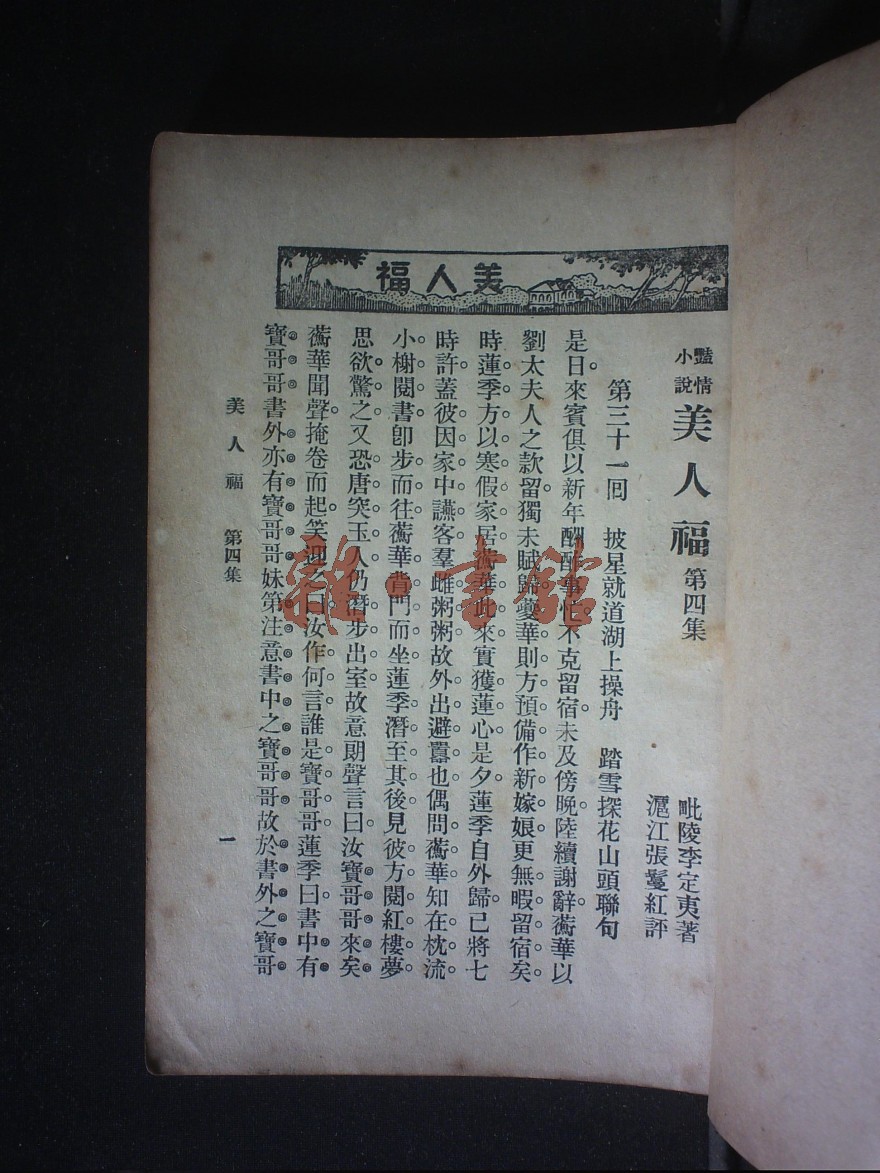 美人福
豔情小說 美人福 第四集
毗陵李定夷著
滬江張鬘紅評
第三十一回 披星就道湖上操舟 踏雪探花山頭聯句
是日來賓俱以新年酬酢事忙不克留宿未及傍晚陸續謝辭蘅華以
劉太夫人之款留獨未賦歸瓊華則方預備作新嫁娘更無暇留宿矣
時蓮季方以寒假家居蘅華此來實獲蓮心是夕蓮季自外歸已將七
時許蓋彼因家中讌客羣雌粥粥故外出避囂也偶問蘅華知在枕流
小榭閱書卽步而往蘅華背門而坐蓮季潛至其後見彼方閱紅樓夢
思欲驚之又恐唐突玉人仍潛步出室故意朗聲言曰汝寶哥哥來矣
蘅華聞聲掩卷而起笑迎之曰汝作何言誰是寶哥哥蓮季曰書中有
寶哥哥書外亦有寶哥哥妹第注意書中之寶哥哥故於書外之寶哥
美人福 第四集
一
雜·書館